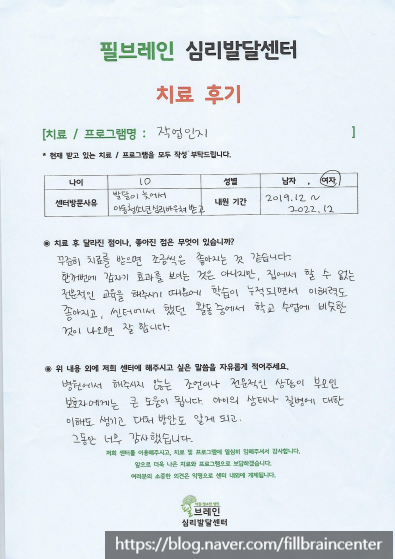 필브레인 심리발달센터
치료 후기
[치료 / 프로그램명 : 작업인지 ]
* 현재 받고 있는 치료 / 프로그램을 모두 작성 부탁드립니다.
나이 10 성별 남자 , 여자
센터방문사유 발달이 늦어서 아동청소년심리바우처 받고 내원 기간 2019.12 ~ 2022.12
◉ 치료 후 달라진 점이나, 좋아진 점은 무엇이 있습니까?
꾸준히 치료를 받으면 조금씩은 좋아지는 것 같습니다.
한꺼번에 갑자기 효과를 보이는 것은 아니지만, 집에서 할 수 없는
전문적인 교육을 해주시기 때문에 학습이 누적되면서 이해력도
좋아지고, 센터에서 했던 활동 중에서 학교 수업에 비슷한
것이 나오면 잘 합니다.
◉ 위 내용 외에 저희 센터에 해주시고 싶은 말씀을 자유롭게 적어주세요.
병원에서 해주시지 않는 조언이나 전문적인 상담이 부모인
보호자에게는 큰 도움이 됩니다. 아이의 상태나 질병에 대한
이해도 생기고 대처 방안도 알게 되고.
그동안 너무 감사했습니다.
저희 센터를 이용해주시고, 치료 및 프로그램에 열심히 임해주셔서 감사합니다.
앞으로 더욱 나은 치료와 프로그램으로 보답하겠습니다.
여러분의 소중한 의견은 익명으로 센터 내외에 게제됩니다.
브레인
심리발달센터
https://blog.naver.com/fillbraincenter